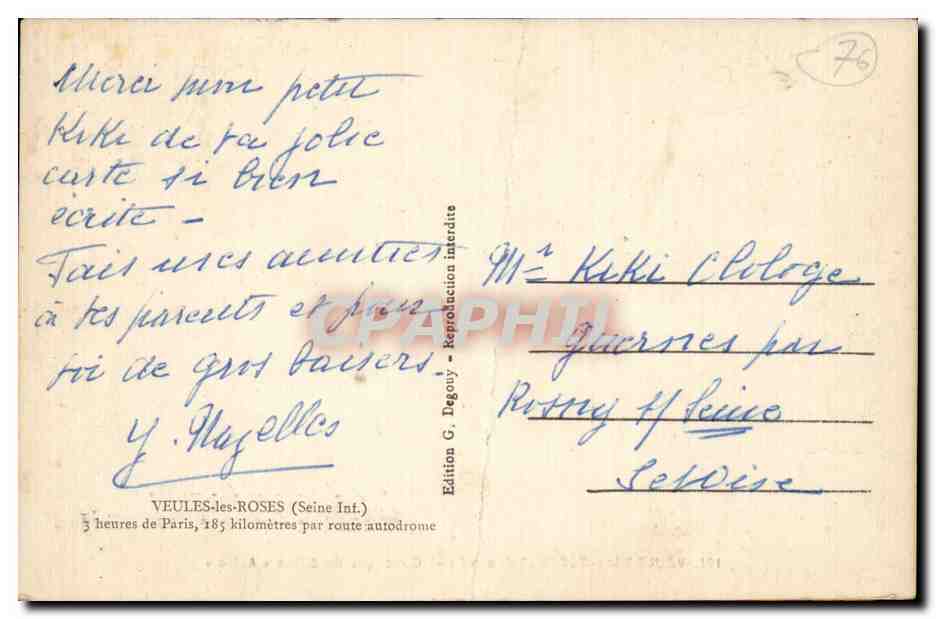 76
Merci mon petit
Kiki de ta jolie
carte si bien
écrite -
Fais mes amitiés
à tes parents et pour
toi de gros baisers.
Y. Mazelles
VEULES-les-ROSES (Seine Inf.)
3 heures de Paris, 185 kilomètres par route autodrome
Edition G. Degouy - Reproduction interdite
CPAPHIL
Mr Kiki Clologe
Guernes par
Rosny s/ Seine
S et Oise